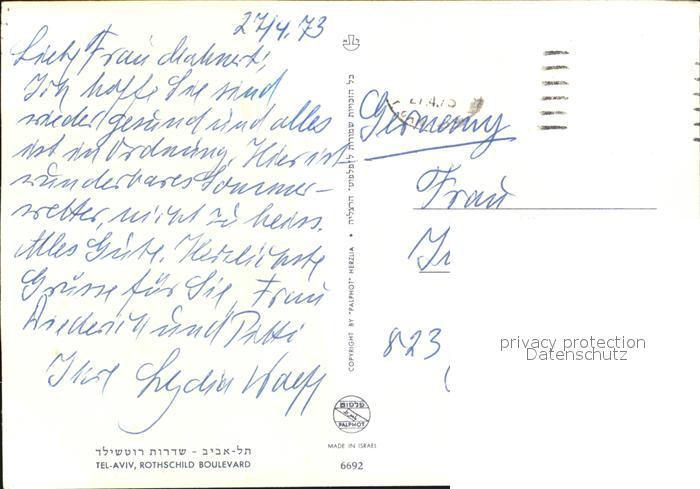 27/4.73
Liebe Frau Mahnert,
Ich hoffe Sie sind
wieder gesund und alles
ist in Ordnung. Hier ist
wunderbares Sommer-
wetter, nicht zu heiss.
Alles Gute. Herzlichste
Grüsse für Sie, Frau
Diederich und Putti
Ihre Lydia
תל-אביב - שדרות רוטשילד
TEL-AVIV, ROTHSCHILD BOULEVARD
כל הזכויות שמורות ל"פלפוט" הרצליה
COPYRIGHT BY "PALPHOT" HERZLIA
פלפוט
PALPHOT
MADE IN ISRAEL
6692
Germany
Frau
823
privacy protection
Datenschutz